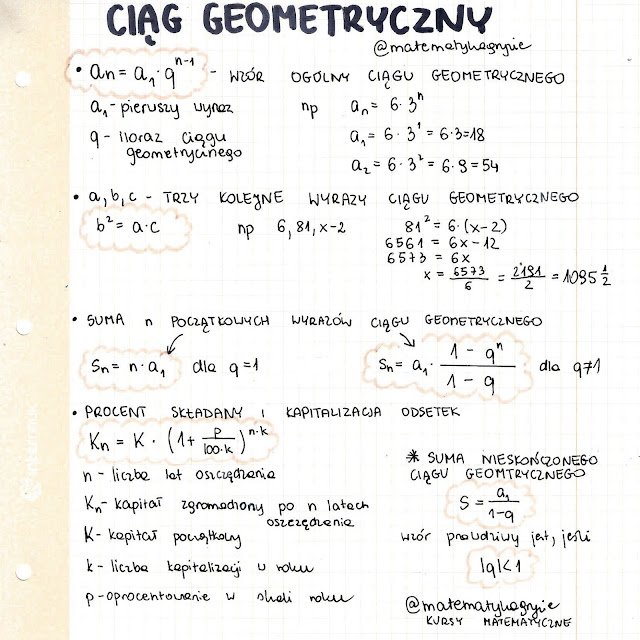 CIĄG GEOMETRYCZNY
@matematykagryzie
• an = a₁ · q^(n-1) - WZÓR OGÓLNY CIĄGU GEOMETRYCZNEGO
a₁ - pierwszy wyraz np an = 6 · 3^n
q - iloraz ciągu geometrycznego a₁ = 6 · 3¹ = 6 · 3 = 18
a₂ = 6 · 3² = 6 · 9 = 54
• a, b, c - TRZY KOLEJNE WYRAZY CIĄGU GEOMETRYCZNEGO
b² = a · c np 6, 81, x-2 81² = 6 · (x-2)
6561 = 6x - 12
6573 = 6x
x = 6573/6 = 2191/2 = 1095 1/2
• SUMA n POCZĄTKOWYCH WYRAZÓW CIĄGU GEOMETRYCZNEGO
Sn = n · a₁ dla q = 1 Sn = a₁ · (1 - q^n)/(1 - q) dla q ≠ 1
• PROCENT SKŁADANY I KAPITALIZACJA ODSETEK
Kn = K · (1 + p/(100·k))^(n·k)
n - liczba lat oszczędzania
Kn - kapitał zgromadzony po n latach
oszczędzania
K - kapitał początkowy
k - liczba kapitalizacji w roku
p - oprocentowanie w skali roku
* SUMA NIESKOŃCZONEGO
CIĄGU GEOMTRYCZNEGO
S = a₁/(1-q)
wzór prawdziwy jest, jeśli
|q| < 1
@matematykagryzie
KURSY MATEMATYCZNE